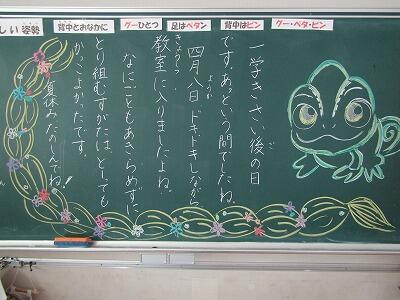 しい姿勢
背中とおなかに
グーひとつ
足はペタン
背中はピン
グー・ペタ・ピン
一学き、さい後の日
です。あっという間でしたね。
四月八日、ドキドキしながら
教室に入りましたよね。
なにごともあきらめずに、
とり組むすがたは、とーっても
かっこよかったです。
夏休みたのしんでね!